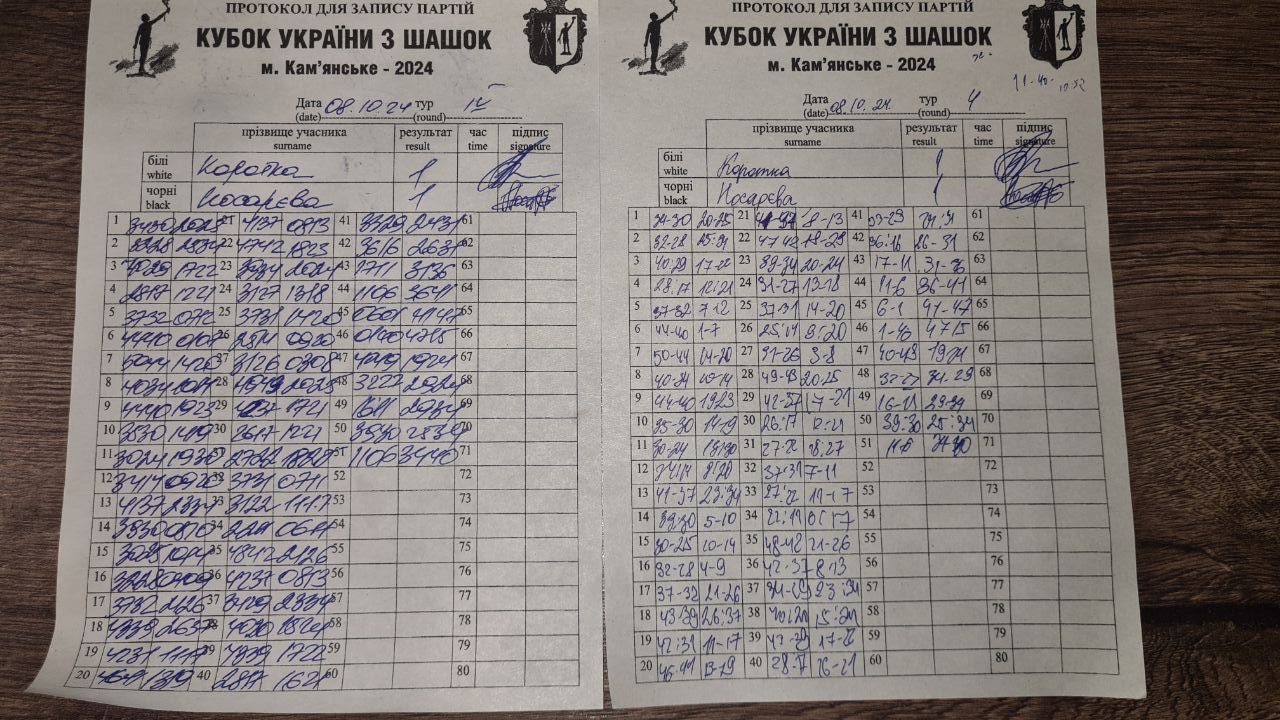 ПРОТОКОЛ ДЛЯ ЗАПИСУ ПАРТІЙ
КУБОК УКРАЇНИ З ШАШОК
м. Кам'янське - 2024
Дата 08.10.24 тур IV
(date) (round)
прізвище учасника результат час підпис
surname result time signature
білі Коротка 1
white
чорні Носарєва 1
black
1 3430 2025 21 4137 0813 41 3329 2431 61
2 3228 2534 22 4742 1823 42 3616 2631 62
3 4029 1722 23 3934 2024 43 1711 3136 63
4 2817 1221 24 3127 1318 44 1106 3641 64
5 3732 0712 25 3731 1420 45 0601 4147 65
6 4440 0107 26 2514 0920 46 4715 66
7 5044 1420 27 3126 0308 47 1924 67
8 4034 1014 28 4943 2025 48 68
9 4440 1923 29 4237 1721 49 1611 2934 69
10 3530 1419 30 2617 1221 50 3930 2534
11 3024 1930 31 2722 1827 51 1106 3440 71
12 3414 0920 32 3731 0711 52 72
13 4137 2334 33 3122 1117 53 73
14 3930 0510 34 2211 0617 54 74
15 3025 1014 35 4842 2126 55 75
16 3228 0409 36 4237 0813 56 76
17 3732 2126 37 3429 2334 57 77
18 4339 2637 38 4030 1524 58 78
19 4231 1117 39 4339 1722 59 79
20 4641 1319 40 2817 1621 60 80
ПРОТОКОЛ ДЛЯ ЗАПИСУ ПАРТІЙ
КУБОК УКРАЇНИ З ШАШОК
м. Кам'янське - 2024
11-40
Дата 08.10.24 тур 4
(date) (round)
прізвище учасника результат час підпис
surname result time signature
білі Коротка 1
white
чорні Носарєва 1
black
1 34-30 20-25 21 41-37 8-13 41 33-29 24:31 61
2 32-28 25:34 22 47-42 18-23 42 36:16 26-31 62
3 40:29 17-22 23 39-34 20-24 43 17-11 31-36 63
4 28:17 12:21 24 31-27 13-18 44 11-6 36-41 64
5 37-32 7-12 25 37-31 14-20 45 6-1 41-47 65
6 44-40 1-7 26 25:14 9:20 46 1-40 47:15 66
7 50-44 14-20 27 31-26 3-8 47 19-24 67
8 40-34 10-14 28 49-43 20-25 48 32-27 24-29 68
9 44-40 19-23 29 42-37 17-21 49 16-11 29-34 69
10 35-30 14-19 30 26:17 12:21 50 39:30 25:34 70
11 30-24 19:30 31 27-22 18:27 51 11-6 34-40 71
12 34:14 9:20 32 37-31 7-11 52 72
13 41-37 23:34 33 11-17 53 73
14 39:30 5-10 34 22:11 6:17 54 74
15 30-25 10-14 35 48-42 21-26 55 75
16 32-28 4-9 36 42-37 8-13 56 76
17 37-32 21-26 37 34-29 23:34 57 77
18 43-39 26:37 38 40:20 15:24 58 78
19 42:31 11-17 39 43-39 17-22 59 79
20 46-41 13-19 40 28:17 16-21 60 80